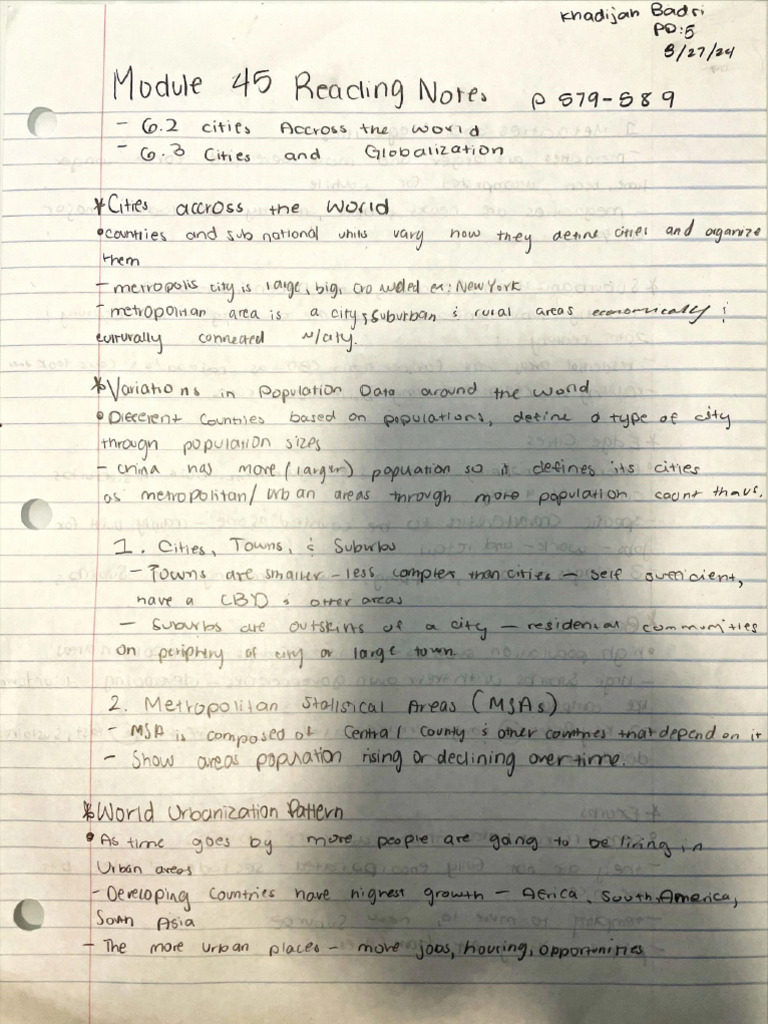 Khadijah Badri
PD:5
3/27/24
Module 45 Reading Notes p 579-589
- 6.2 cities Accross the world
- 6.3 Cities and Globalization
*Cities accross the World
•countries and sub national units vary how they define cities and organize
them
- metropolis city is large, big, crowded ex: New York
- metropolitan area is a city, suburban & rural areas economically &
culturally connected w/city.
*Variations in Population Data around the world
• Different Countries based on populations, define a type of city
through population sizes
- china has more (larger) popuation so it defines its cities
as metropolitan/urban areas through more population count
1. Cities, Towns, & Suburbs
- Towns are smaller - less complex than cities - self sufficient,
have a CBD & other areas
- Suburbs are outskirts of a city - residential communities
on periphery of city or large town.
2. Metropolitan Statistical Areas (MSAs)
- MSA is composed of Central County & other countries that depend on it
- Show areas population rising or declining over time.
*World Urbanization Pattern
• As time goes by more people are going to be living in
Urban areas
- Developing Countries have highest growth - Africa, South America,
South Asia
- The more urban places - more jobs, housing, opportunities